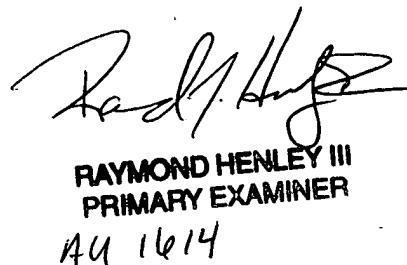 RAYMOND HENLEY III
PRIMARY EXAMINER
AU 1614